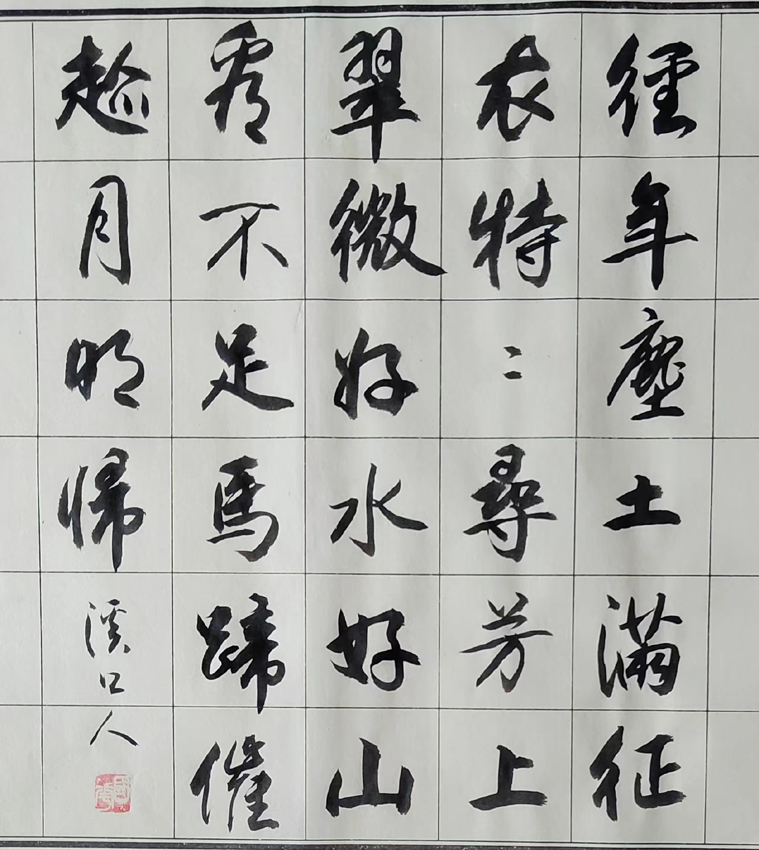 徑年塵土滿征
衣特〻尋芳上
翠微好水好山
看不足馬蹄催
趁月明歸溪口人